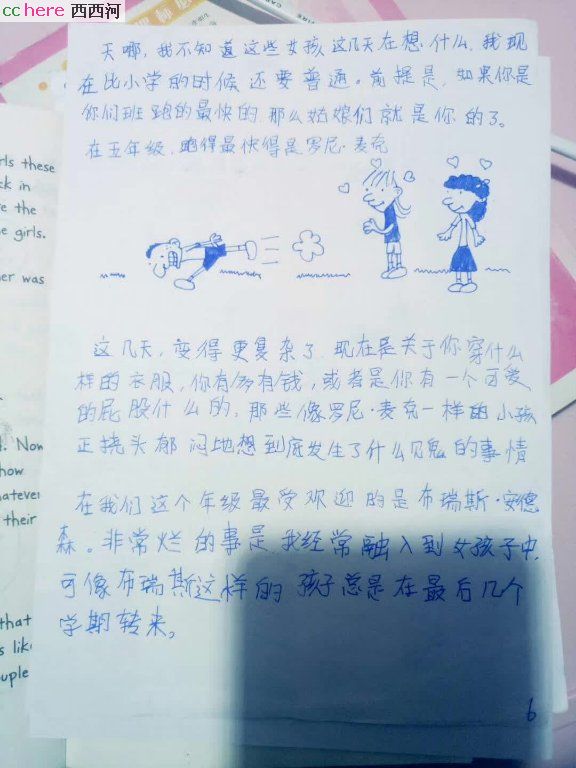 cchere 西西河
天哪,我不知道这些女孩这几天在想什么,我现
在比小学的时候还要普通。前提是,如果你是
你们班跑的最快的,那么姑娘们就是你的了。
在五年级,跑得最快得是罗尼·麦克
这几天,变得更复杂了.现在是关于你穿什么
样的衣服,你有多有钱,或者是你有一个可爱
的屁股什么的,那些像罗尼·麦克一样的小孩
正挠头郁闷地想到底发生了什么见鬼的事情
在我们这个年级最受欢迎的是布瑞斯·安德
森。非常烂的事是,我经常融入到女孩子中,
可像布瑞斯这样的孩子总是在最后几个
学期转来。
6
rls these
ck in
e the
e girls.
er was
. Now
how
hatever
their
that
s like
uple